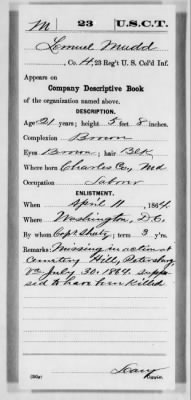 M | 23 | U.S.C.T.
Lemuel Mudd
, Co. H, 23 Reg't U. S. Col'd Inf.
Appears on
Company Descriptive Book
of the organization named above.
DESCRIPTION.
Age 21 years; height 5 feet 8 inches.
Complexion Brown
Eyes Brown; hair Blk
Where born Charles Co, Md
Occupation Labour
ENLISTMENT.
When April 11, 1864.
Where Washington, D.C.
By whom Capt. ; term 3 y'rs.
Remarks: Missing in action at
Cemetery Hill, Petersburg
Va July 30. 1864. suppo
sed to have been killed
Copyist.